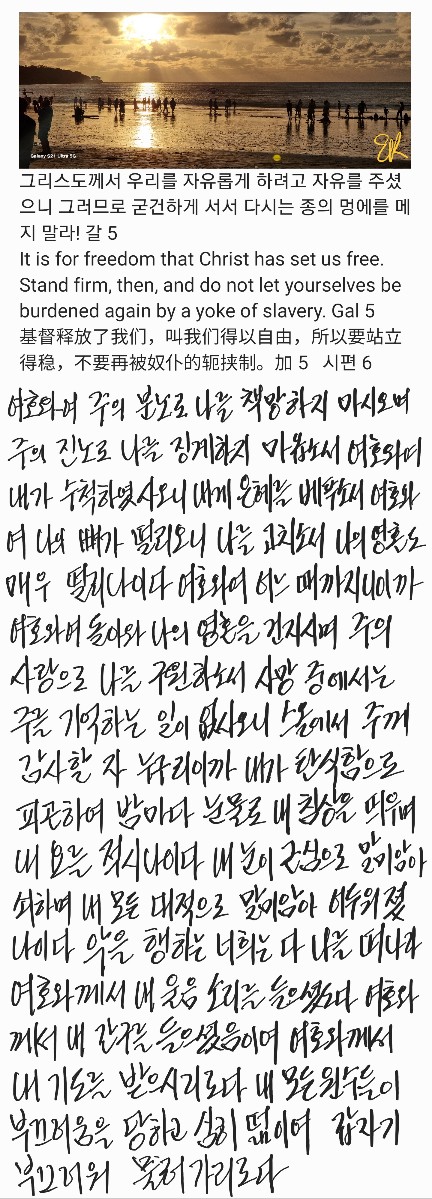 Galaxy S21 Ultra 5G
그리스도께서 우리를 자유롭게 하려고 자유를 주셨
으니 그러므로 굳건하게 서서 다시는 종의 멍에를 메
지 말라! 갈 5
It is for freedom that Christ has set us free.
Stand firm, then, and do not let yourselves be
burdened again by a yoke of slavery. Gal 5
基督释放了我们，叫我们得以自由，所以要站立
得稳，不要再被奴仆的轭挟制。加 5 시편 6
여호와여 주의 분노로 나를 책망하지 마시오며
주의 진노로 나를 징계하지 마옵소서 여호와여
내가 수척하였사오니 내게 은혜를 베푸소서 여호와
여 나의 뼈가 떨리오니 나를 고치소서 나의 영혼도
매우 떨리나이다 여호와여 어느 때까지니이까
여호와여 돌아와 나의 영혼을 건지시며 주의
사랑으로 나를 구원하소서 사망 중에서는
주를 기억하는 일이 없사오니 스올에서 주께
감사할 자 누구리이까 내가 탄식함으로
피곤하여 밤마다 눈물로 내 침상을 띄우며
내 요를 적시나이다 내 눈이 근심으로 말미암아
쇠하며 내 모든 대적으로 말미암아 어두워졌
나이다 악을 행하는 너희는 다 나를 떠나라
여호와께서 내 울음 소리를 들으셨도다 여호와
께서 내 간구를 들으셨음이여 여호와께서
내 기도를 받으시리로다 내 모든 원수들이
부끄러움을 당하고 심히 떪이여 갑자기
부끄러워 물러가리로다